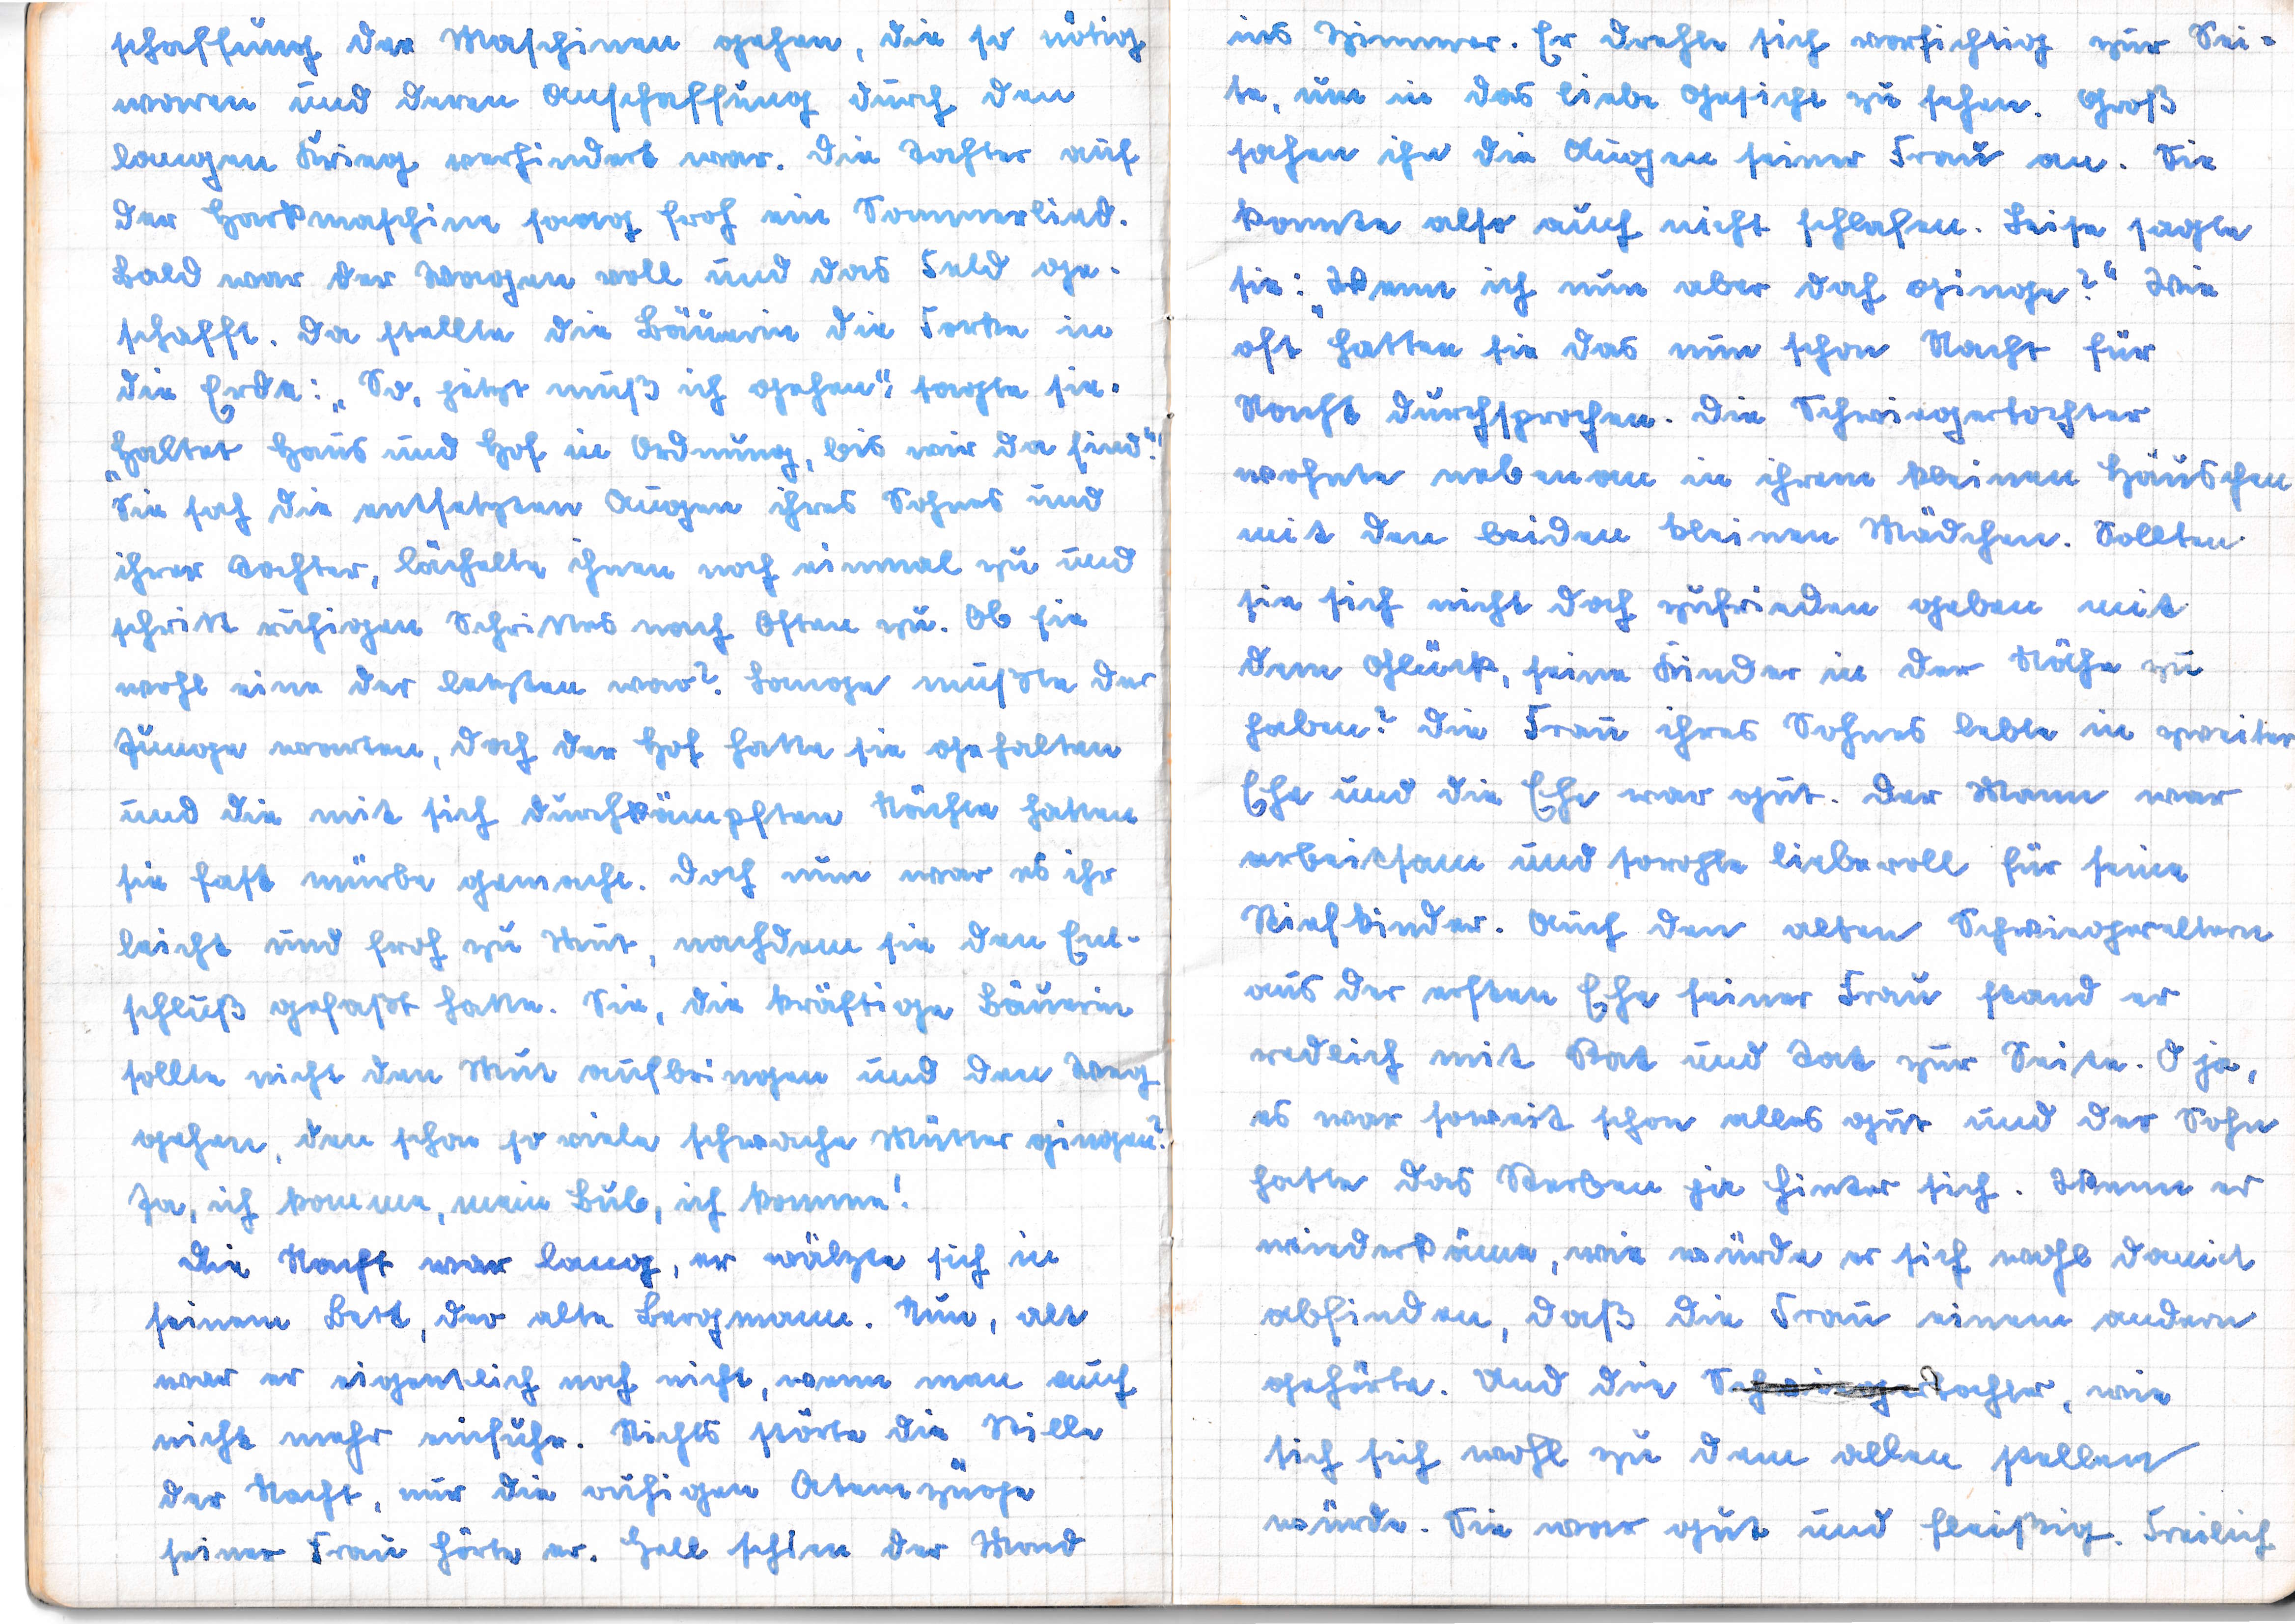 schaffung der Maschinen gehen, die so nötig
waren und deren Anschaffung durch den
langen Krieg verhindert war. Die Tochter auf
der Harkmaschine sang froh ein Sommerlied.
Bald war der Wagen voll und das Feld ge-
schafft. Da stellte die Bäuerin die Forke in
die Erde: „So, jetzt muß ich gehen", sagte sie.
„Haltet Haus und Hof in Ordnung, bis wir da sind"!
Sie sah die entsetzten Augen ihres Sohnes und
ihrer Tochter, lächelte ihnen noch einmal zu und
schritt ruhigen Schrittes nach Osten zu. Ob sie
wohl eine der letzten war? Lange mußte der
Junge warten, doch der Hof hatte sie gehalten
und die mit sich durchkämpften Nächte hatten
sie fast mürbe gemacht. Doch nun war es ihr
leicht und froh zu Mut, nachdem sie den Ent-
schluß gefaßt hatte. Sie, die kräftige Bäuerin
sollte nicht den Mut aufbringen und den Weg
gehen, den schon so viele schwache Mütter gingen?
Ja, ich komme, mein Bub, ich komme!
Die Nacht war lang, er wälzte sich in
seinem Bett, der alte Bergmann. Nun, alt
war er eigentlich noch nicht, wenn man auch
nicht mehr einfuhr. Nichts störte die Stille
der Nacht, nur die ruhigen Atemzüge
seiner Frau hörte er. Hell schien der Mond
ins Zimmer. Er drehte sich vorsichtig zur Sei-
te, um in das liebe Gesicht zu sehen. Groß
sahen ihn die Augen seiner Frau an. Sie
konnte also auch nicht schlafen. Leise sagte
sie: „Wenn ich nun aber doch ginge?" Wie
oft hatten sie das nun schon Nacht für
Nacht durchsprochen. Die Schwiegertochter
wohnte nebenan in ihrem kleinen Häuschen
mit den beiden kleinen Mädchen. Sollten
sie sich nicht doch zufrieden geben mit
dem Glück, seine Kinder in der Nähe zu
haben? Die Frau ihres Sohnes lebte in zweiter
Ehe und die Ehe war gut. Der Mann war
arbeitsam und sorgte liebevoll für seine
Stiefkinder. Auch den alten Schwiegereltern
aus der ersten Ehe seiner Frau stand er
redlich mit Rat und Tat zur Seite. O ja,
es war soweit schon alles gut und der Sohn
hatte das Sterben ja hinter sich. Wenn er
wiederkäme, wie würde er sich wohl damit
abfinden, daß die Frau einem andern
gehörte. Und die Schwiegertochter, wie
sich sich wohl zu dem allen stellen
würde. Sie war gut und fleißig. Freilich